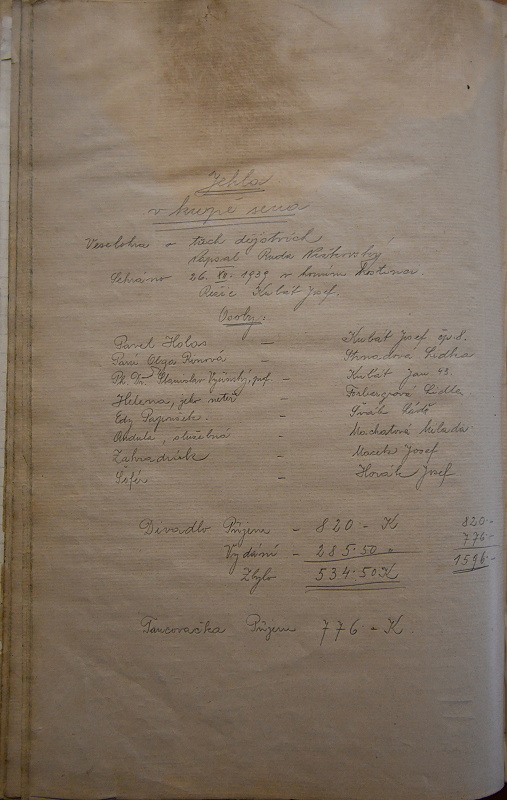 Jehla
v kupě sena
Veselohra o třech dějstvích
napsal Ruda
Sehráno 26. XII. 1939 v hostinci
Režie Kubát Josef.
Osoby:
Pavel Holas — Kubát Josef čp. 8.
Paní Olga Ronová — Strnadová Lidka
Ph. Dr. Stanislav prof. — Kubát Jan 43.
Helena, jeho neteř — Lidka
Edy Papoušek. — Láďa
Obdula, služebná — Machatová Milada
Zahradník — Macek Josef
Šofér — Novák Josef
Divadlo Příjem — 820 - K 820 -
Vydání — 285·50 „ 776 -
Zbylo 534·50 K 1596 -
Tancovačka Příjem 776 - K.